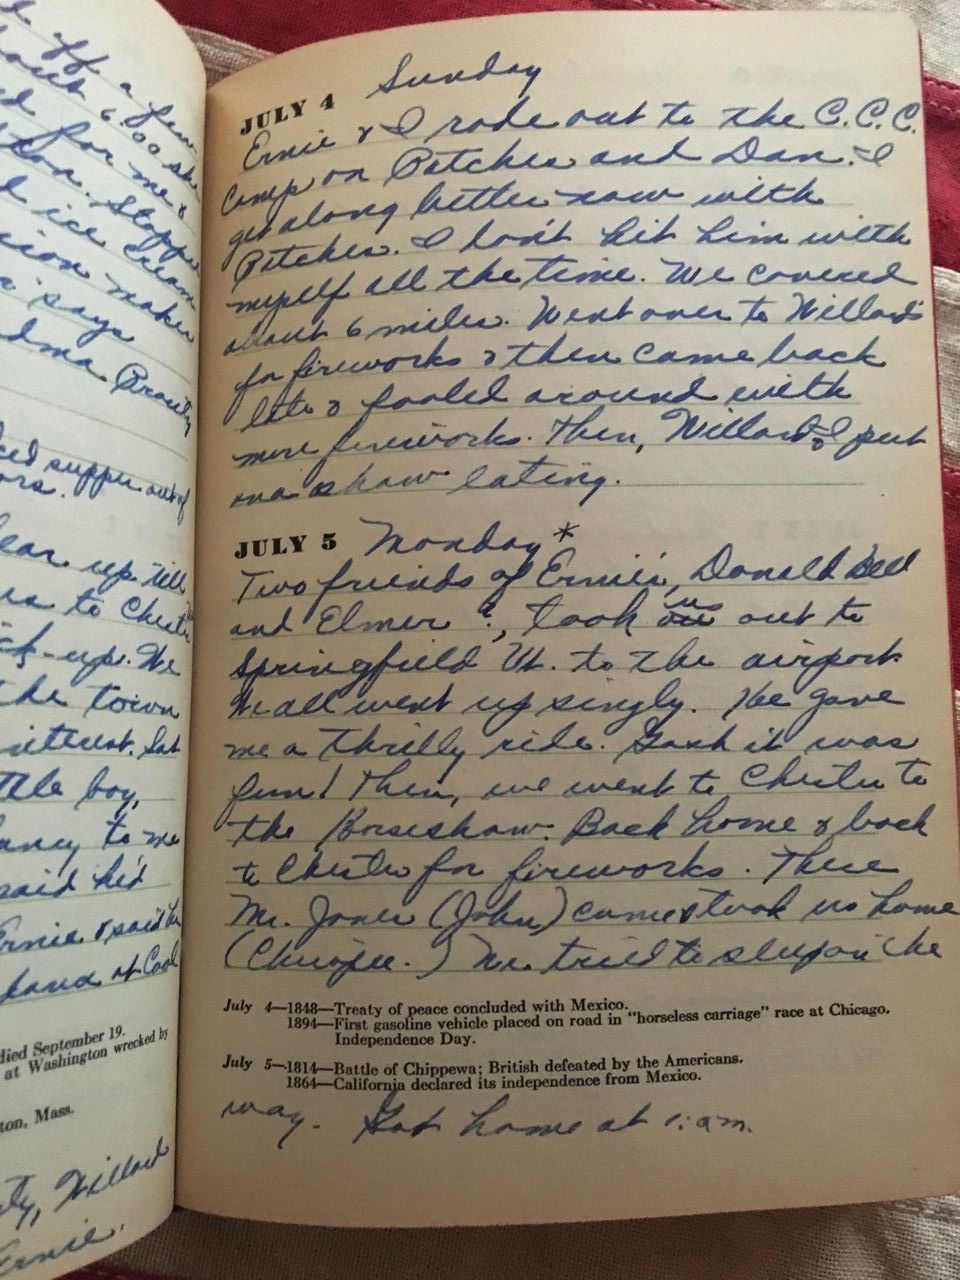 off a few
about 6:00 she
d for me &
Stopped
d ice cream
sion maker
says
dma Prouty
ced supper out of
ors.
lear up till
us to Chester
ick-up. We
the town
interest. Sat
ttle boy,
ancy to me
said he'd
Ernie & said he
hand at Cool
died September 19.
at Washington wrecked by
ton, Mass.
ty, Willard
Ernie.
JULY 4 Sunday
Ernie & I rode out to the C.C.C.
Camp on Patches and Dan. I
get along better now with
Patches. I don't hit him with
myself all the time. We covered
about 6 miles. Went over to Willard's
for fireworks & then came back
late & fooled around with
more fireworks. Then, Willard & I put
on a show eating.
JULY 5 Monday *
Two friends of Ernie's, Donald Bell
and Elmer ?, took us out to
Springfield Vt. to the airport.
We all went up singly. He gave
me a thrilly ride. Gosh it was
fun! Then, we went to Chester to
the Horseshow. Back home & back
to Chester for fireworks. There
Mr. Jones (John) came & took us home
We tried to sleep on the
July 4—1848—Treaty of peace concluded with Mexico.
1894—First gasoline vehicle placed on road in "horseless carriage" race at Chicago.
Independence Day.
July 5—1814—Battle of Chippewa; British defeated by the Americans.
1864—California declared its independence from Mexico.
way. Got home at 1: a.m.